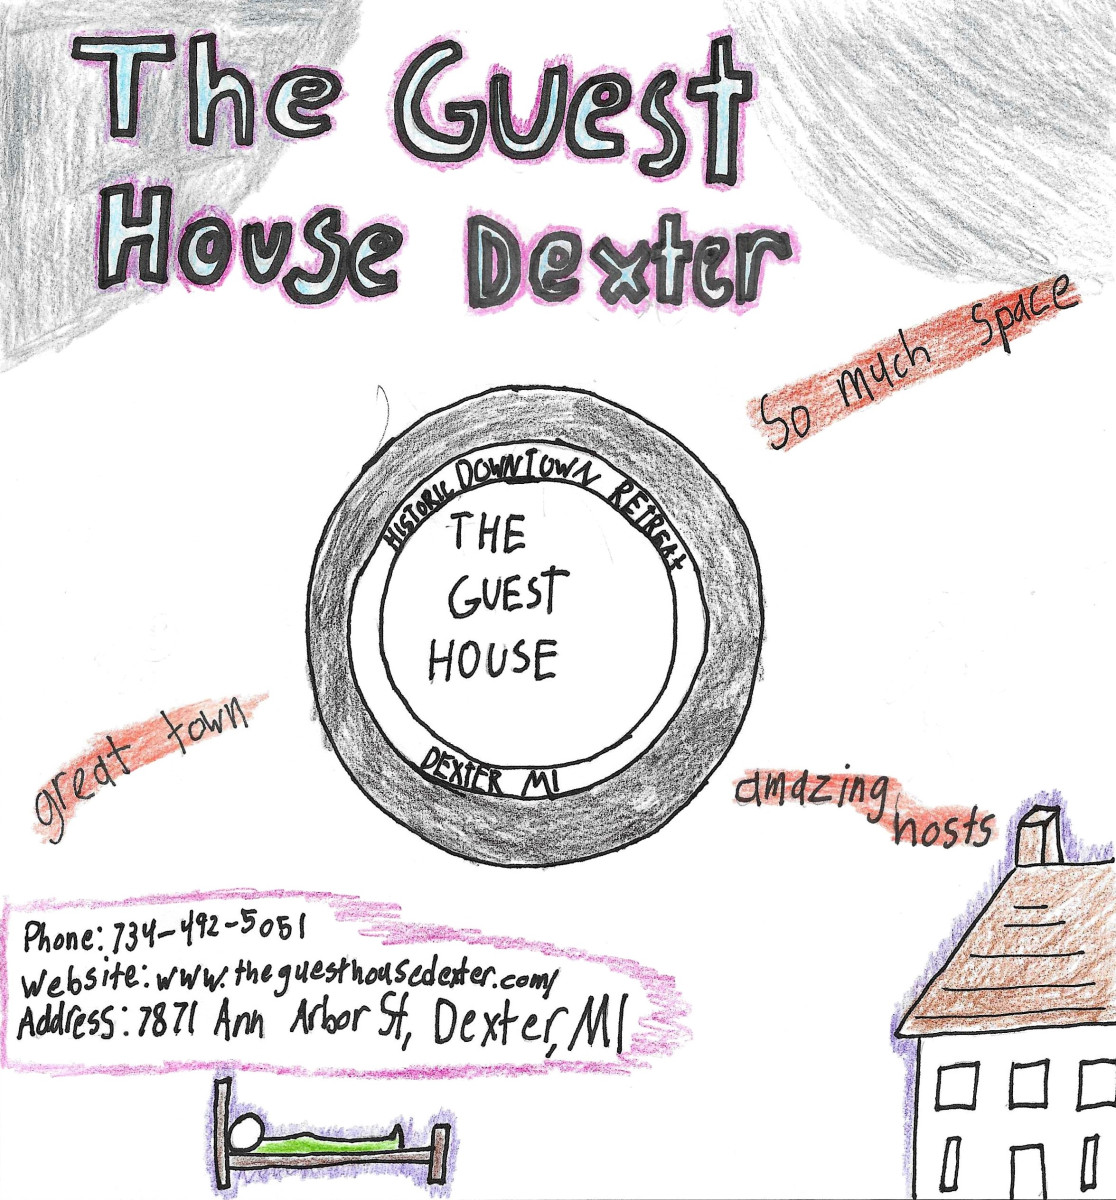 The Guest
House Dexter
So much space
HISTORIC DOWNTOWN RETREAT
THE
GUEST
HOUSE
DEXTER MI
great town
amazing
hosts
Phone: 734-492-5051
Website: www.theguesthousedexter.com/
Address: 7871 Ann Arbor St, Dexter, MI